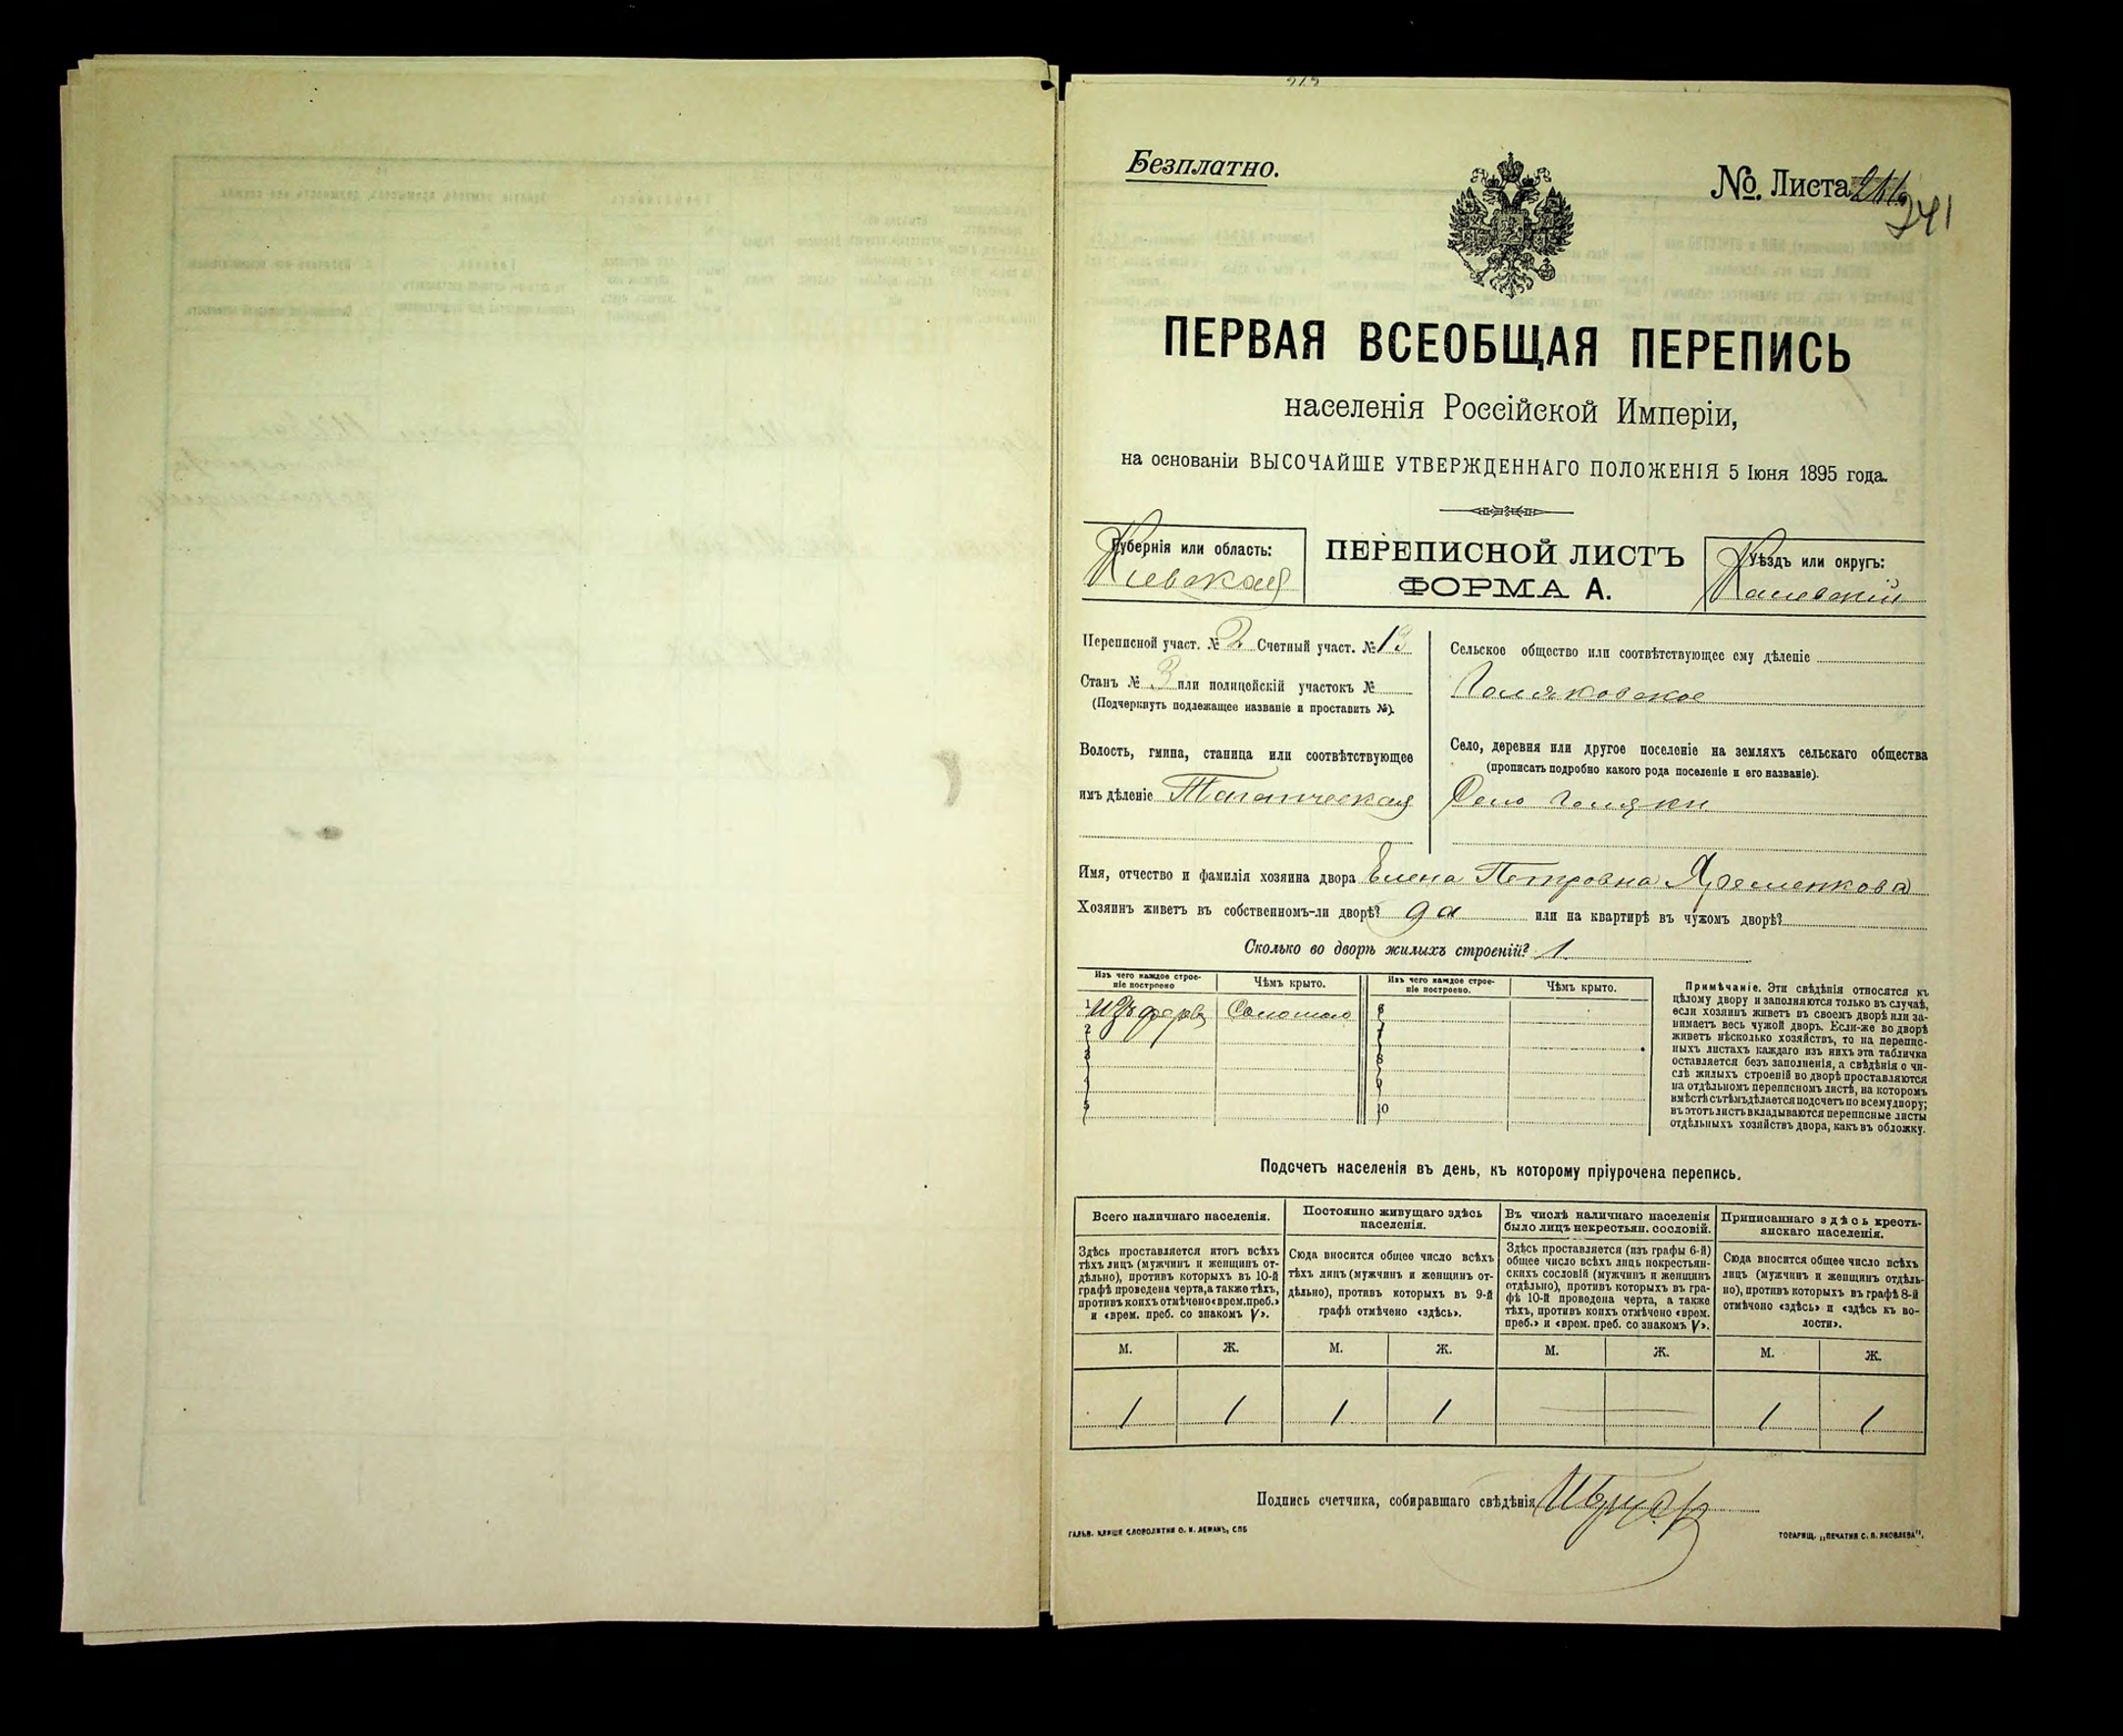 Безплатно.
№ Листа 241
ПЕРВАЯ ВСЕОБЩАЯ ПЕРЕПИСЬ
населенія Россійской Имперіи,
на основаніи ВЫСОЧАЙШЕ УТВЕРЖДЕННАГО ПОЛОЖЕНІЯ 5 Іюня 1895 года.
Губернія или область:
Кіевская
ПЕРЕПИСНОЙ ЛИСТЪ
ФОРМА А.
Уѣздъ или округъ:
Каневскій
Переписной участ. № 2 Счетный участ. № 13
Станъ № 3 или полицейскій участокъ №
(Подчеркнуть подлежащее названіе и проставить №).
Волость, гмина, станица или соотвѣтствующее
имъ дѣленіе Таганческая
Сельское общество или соотвѣтствующее ему дѣленіе
Голяковское
Село, деревня или другое поселеніе на земляхъ сельскаго общества
(прописать подробно какого рода поселеніе и его названіе).
Село Голяки
Имя, отчество и фамилія хозяина двора Елена Петровна Яременкова
Хозяинъ живетъ въ собственномъ-ли дворѣ? да или на квартирѣ въ чужомъ дворѣ?
Сколько во дворѣ жилыхъ строеній? 1
Изъ чего каждое строе-
ніе построено
Чѣмъ крыто.
Изъ чего каждое строе-
ніе построено.
Чѣмъ крыто.
1 Изъ дерева Соломою 6
2 7
3 8
4 9
5 10
Примѣчаніе. Эти свѣдѣнія относятся къ
цѣлому двору и заполняются только въ случаѣ,
если хозяинъ живетъ въ своемъ дворѣ или за-
нимаетъ весь чужой дворъ. Если-же во дворѣ
живетъ нѣсколько хозяйствъ, то на перепис-
ныхъ листахъ каждаго изъ нихъ эта табличка
оставляется безъ заполненія, а свѣдѣнія о чи-
слѣ жилыхъ строеній во дворѣ проставляются
на отдѣльномъ переписномъ листѣ, на которомъ
вмѣстѣ съ тѣмъ дѣлается подсчетъ по всему двору;
въ этотъ листъ вкладываются переписные листы
отдѣльныхъ хозяйствъ двора, какъ въ обложку.
Подсчетъ населенія въ день, къ которому пріурочена перепись.
Всего наличнаго населенія.
Здѣсь проставляется итогъ всѣхъ
тѣхъ лицъ (мужчинъ и женщинъ от-
дѣльно), противъ которыхъ въ 10-й
графѣ проведена черта, а также тѣхъ,
противъ коихъ отмѣчено «врем. преб.»
и «врем. преб. со знакомъ V».
Постоянно живущаго здѣсь
населенія.
Сюда вносится общее число всѣхъ
тѣхъ лицъ (мужчинъ и женщинъ от-
дѣльно), противъ которыхъ въ 9-й
графѣ отмѣчено «здѣсь».
Въ числѣ наличнаго населенія
было лицъ некрестьян. сословій.
Здѣсь проставляется (изъ графы 6-й)
общее число всѣхъ лицъ некрестьян-
скихъ сословій (мужчинъ и женщинъ
отдѣльно), противъ которыхъ въ гра-
фѣ 10-й проведена черта, а также
тѣхъ, противъ коихъ отмѣчено «врем.
преб.» и «врем. преб. со знакомъ V».
Приписаннаго здѣсь кресть-
янскаго населенія.
Сюда вносится общее число всѣхъ
лицъ (мужчинъ и женщинъ отдѣль-
но), противъ которыхъ въ графѣ 8-й
отмѣчено «здѣсь» и «здѣсь къ во-
лости».
М. Ж. М. Ж. М. Ж. М. Ж.
1 1 1 1 — 1 1
Подпись счетчика, собиравшаго свѣдѣнія
ГАЛЬВ. КЛИШЕ СЛОВОЛИТНИ О. И. ЛЕМАНЪ, СПБ
ТОВАРИЩ. „ПЕЧАТНЯ С. П. ЯКОВЛЕВА“.